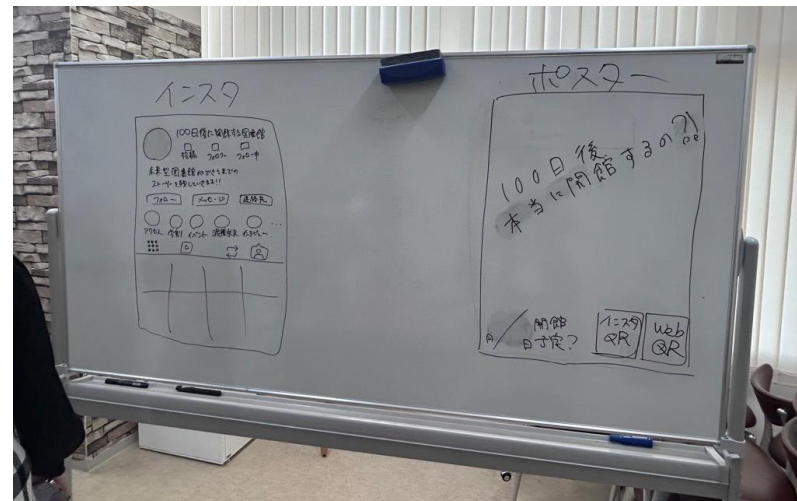 インスタ
100日後に開館する図書館
投稿 フォロワー フォロー中
未来型図書館ができるまでの
ストーリーを残していきます!!
フォロー メッセージ 連絡先
アクセス イベント インタビュー
ポスター
100日後
本当に開館するの?!
月/日 開館予定?
インスタQR
Web QR